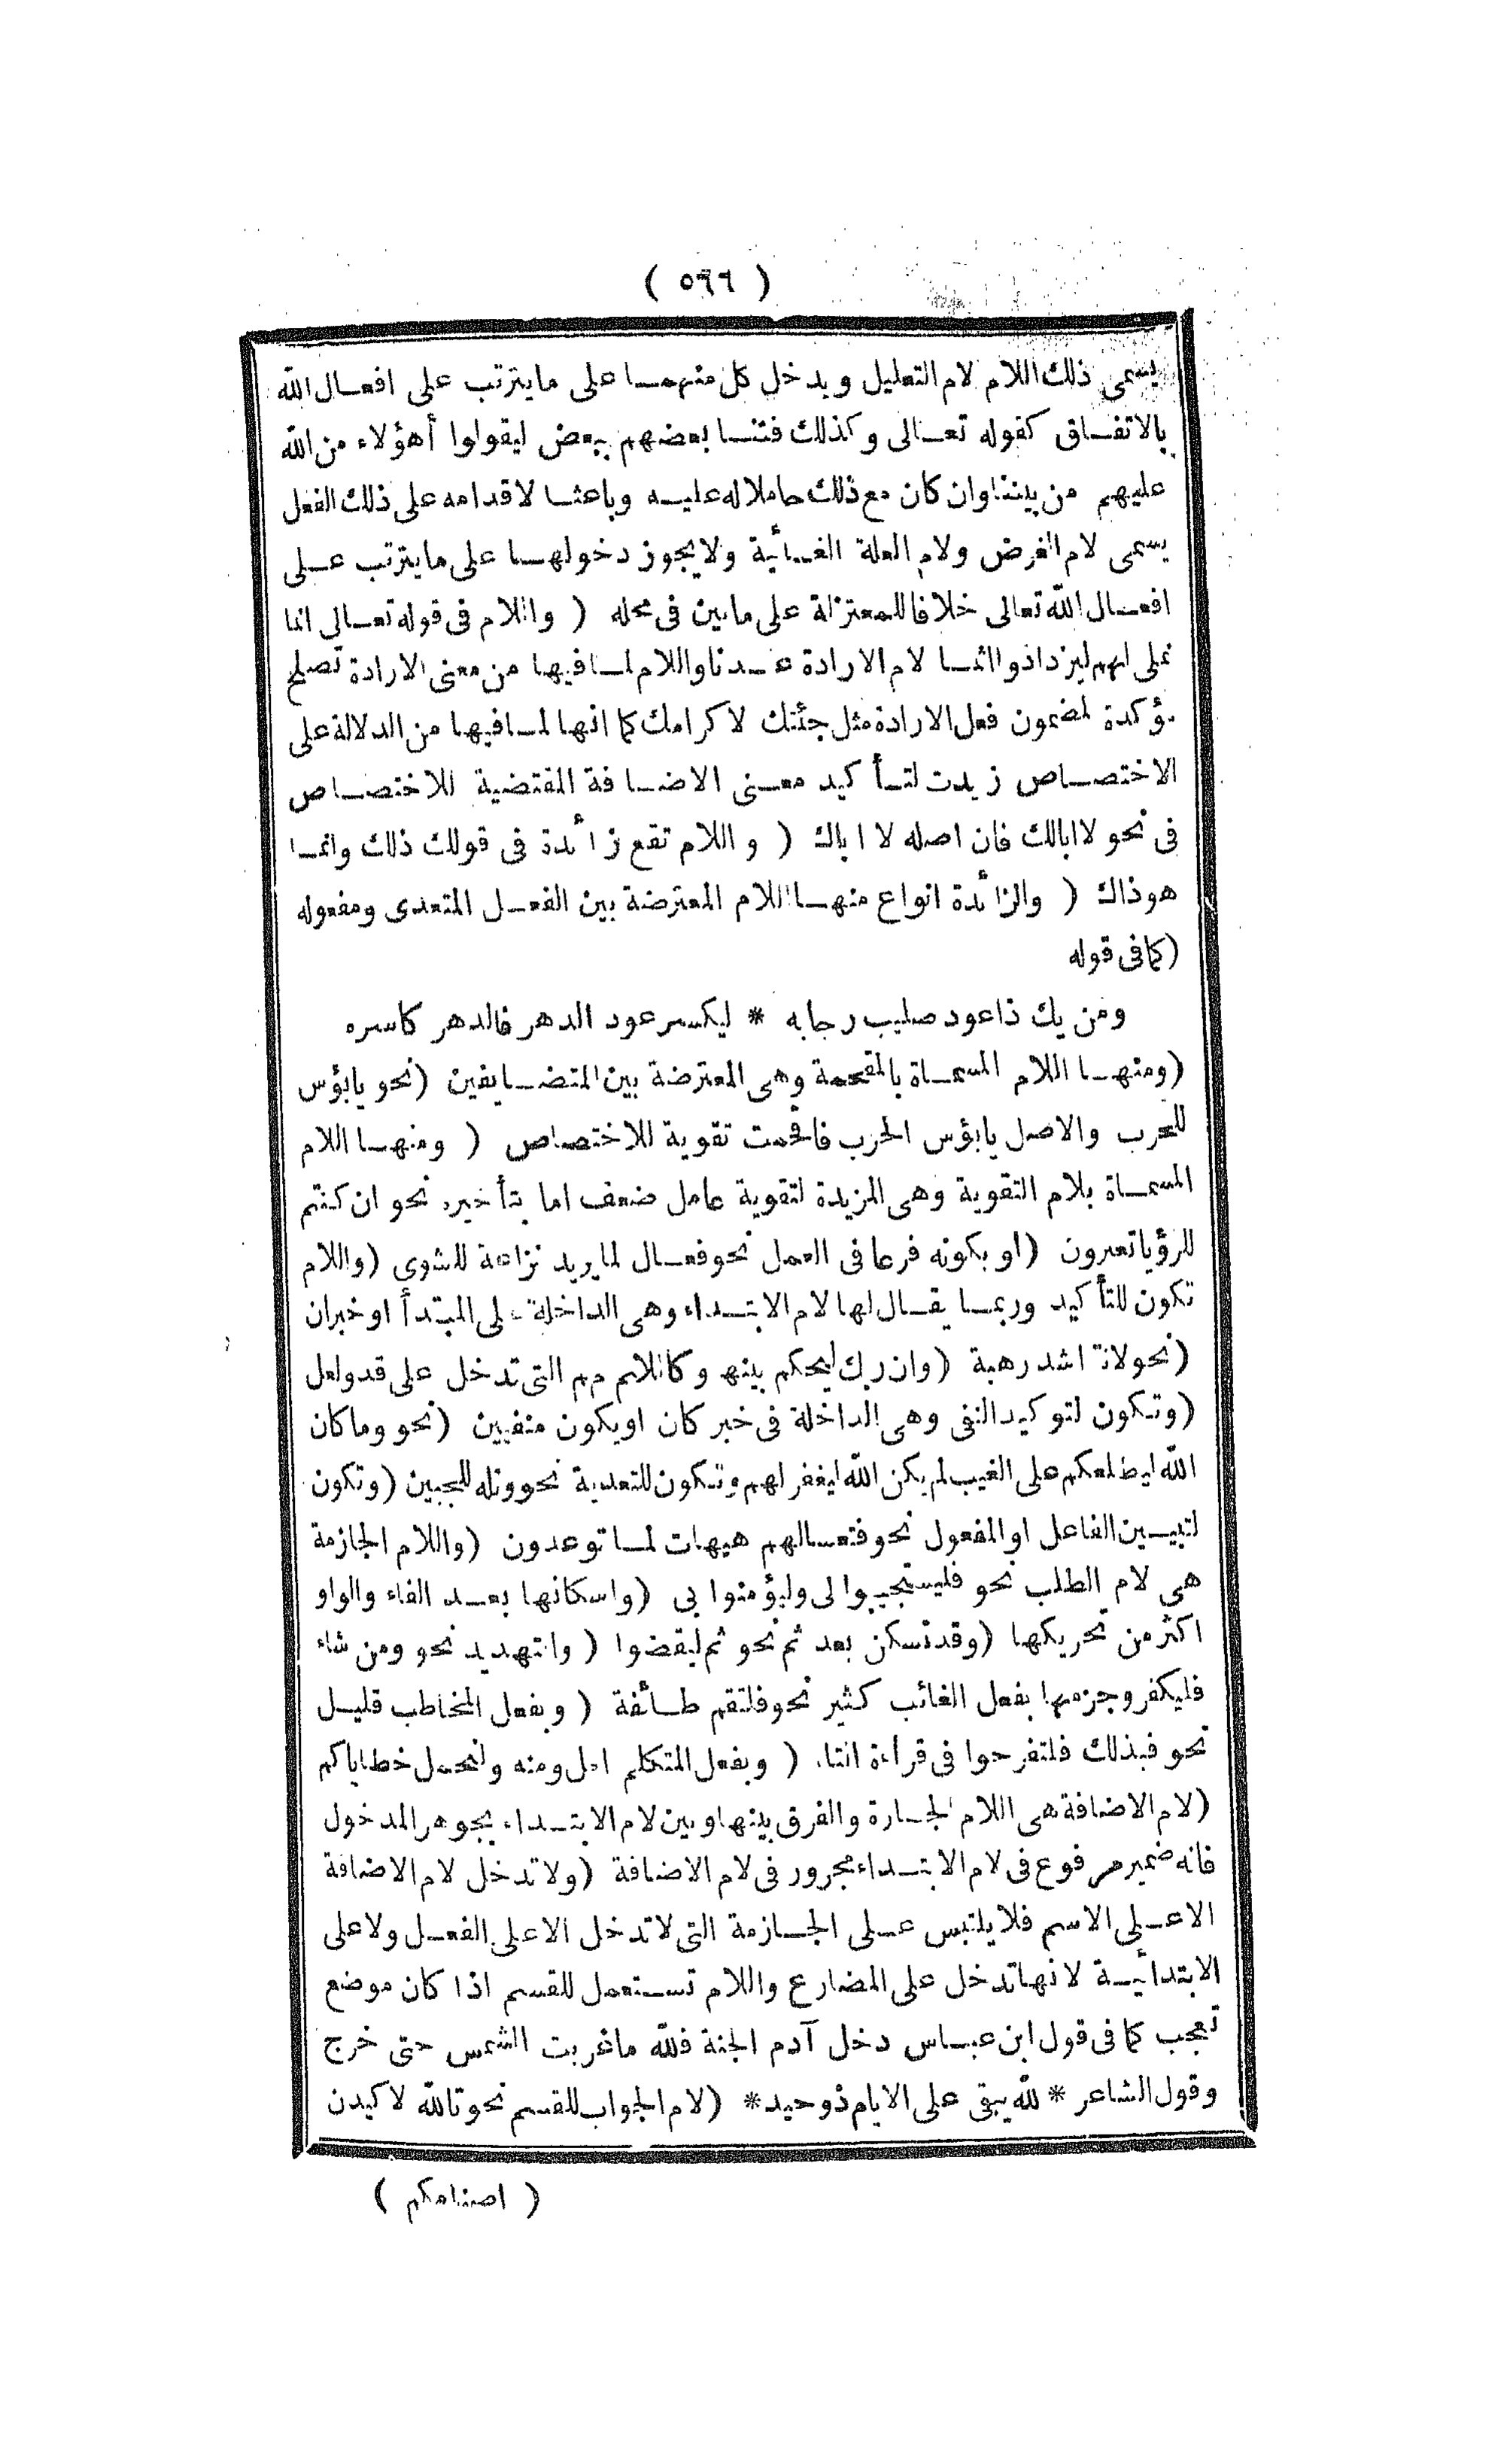 ( ٥٩٦ )
يسمى ذلك اللام لام التعليل ويدخل كل منهما على مايترتب على افعال الله
بالاتفاق كقوله تعالى وكذلك فتنا بعضهم ببعض ليقولوا أهؤلاء من الله
عليهم من بيننا وان كان مع ذلك حاملا له عليه وباعثا لاقدامه على ذلك الفعل
يسمى لام الغرض ولام العلة الغائية ولايجوز دخولها على مايترتب على
افعال الله تعالى خلافا للمعتزلة على مابين فى محله ( واللام فى قوله تعالى انما
نملى لهم ليزدادوا اثما لام الارادة عندنا واللام لما فيها من معنى الارادة تصلح
مؤكدة لمضمون فعل الارادة مثل جئتك لاكرامك كما انها لما فيها من الدلالة على
الاختصاص زيدت لتأكيد معنى الاضافة المقتضية للاختصاص
فى نحو لاابالك فان اصله لا اباك ( واللام تقع زائدة فى قولك ذلك وانما
هو ذاك ( والزائدة انواع منها اللام المعترضة بين الفعل المتعدى ومفعوله
(كما فى قوله
ومن يك ذاعود صليب رجابه * ليكسر عود الدهر فالدهر كاسره
(ومنها اللام المسماة بالمقحمة وهى المعترضة بين المتضايفين (نحو يابؤس
للحرب والاصل يابؤس الحرب فاقحمت تقوية للاختصاص ( ومنها اللام
المسماة بلام التقوية وهى المزيدة لتقوية عامل ضعف اما بتأخيره نحو ان كنتم
للرؤيا تعبرون (او بكونه فرعا فى العمل نحو فعال لما يريد نزاعة للشوى (واللام
تكون للتأكيد وربما يقال لها لام الابتداء وهى الداخلة على المبتدأ او خبران
(نحو لانتم اشد رهبة (وان ربك ليحكم بينهم وكاللام التى تدخل على قد ولعل
(وتكون لتوكيد النفى وهى الداخلة فى خبر كان او يكون منفيين (نحو وما كان
الله ليطلعكم على الغيب لم يكن الله ليغفر لهم وتكون للتعدية نحو وتله للجبين (وتكون
لتبيين الفاعل او المفعول نحو فتعسالهم هيهات لما توعدون (واللام الجازمة
هى لام الطلب نحو فليستجيبوا لى وليؤمنوا بى (واسكانها بعد الفاء والواو
اكثر من تحريكها (وقد تسكن بعد ثم نحو ثم ليقضوا ( وانتهديد نحو ومن شاء
فليكفر وجزمها بفعل الغائب كثير نحو فلتقم طائفة ( وبفعل المخاطب قليل
نحو فبذلك فلتفرحوا فى قراءة التاء ( وبفعل المتكلم اقل ومنه ولنحمل خطاياكم
(لام الاضافة هى اللام الجارة والفرق بينها وبين لام الابتداء بجوهر المدخول
فانه ضمير مرفوع فى لام الابتداء مجرور فى لام الاضافة (ولاتدخل لام الاضافة
الاعلى الاسم فلايلتبس على الجازمة التى لاتدخل الاعلى الفعل ولاعلى
الابتدائية لانها تدخل على المضارع واللام تستعمل للقسم اذا كان موضع
تعجب كما فى قول ابن عباس دخل آدم الجنة فلله ماغربت الشمس حتى خرج
وقول الشاعر * لله يبقى على الايام ذوحيد * (لام الجواب للقسم نحو تالله لاكيدن
( اصنامكم )